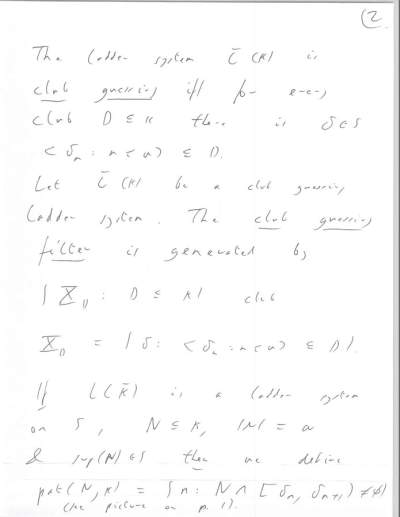 (2
The ladder system L̄(K) is
club guessing iff for every
club D ⊆ κ there is δ∈S
<δ_n : n<ω> ⊆ D.
Let L̄(K) be a club guessing
ladder system. The club guessing
filter is generated by
{X_D : D ⊆ κ} club
X_D = {δ : <δ_n : n<ω> ⊆ D}.
If L(K̄) is a ladder system
on S, N ⊆ κ, |N| = ω
& sup(N) ∈ S then we define
pat(N, K) = {n : N ∩ [δ_n, δ_{n+1}) ≠ ∅}
(see picture on p. 1).